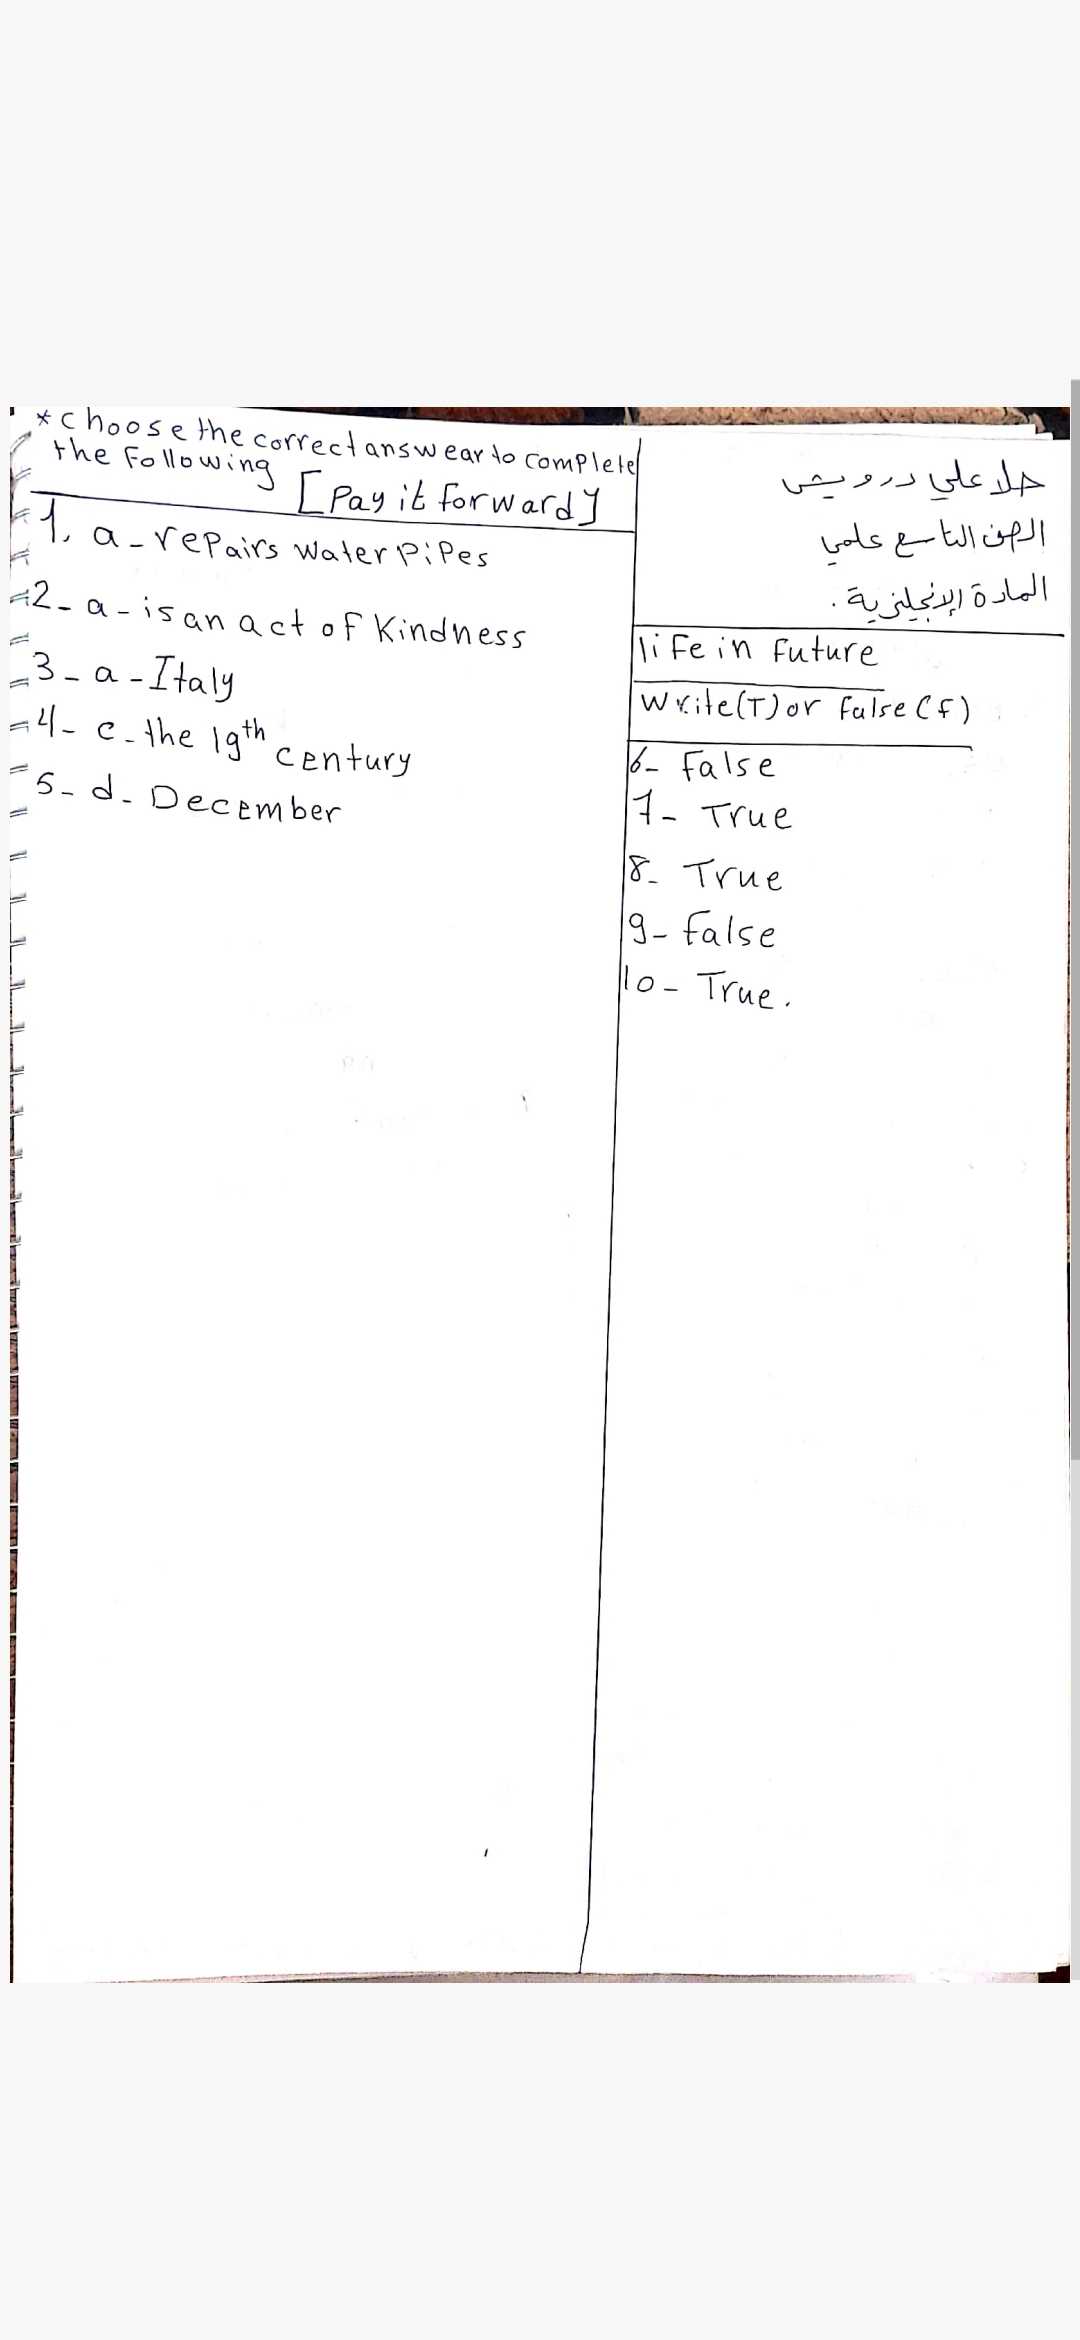 * choose the correct answear to complete
the Following
[Pay it forward]
1. a - repairs water pipes
2 - a - is an act of Kindness
3 - a - Italy
4 - c - the 19th century
5 - d - December
حلا علي درويش
الصف التاسع علمي
المادة الإنجليزية.
life in future
Write (T) or false (f)
6 - false
7 - True
8 - True
9 - false
10 - True.